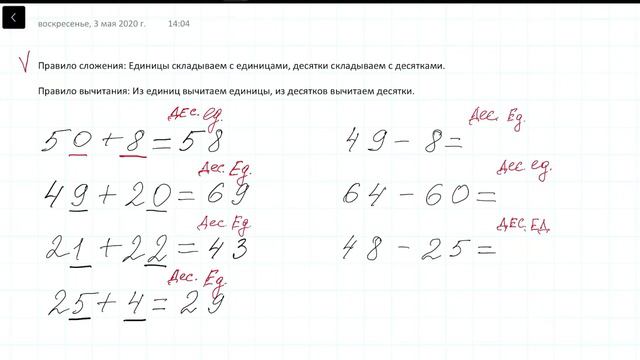 воскресенье, 3 мая 2020 г. 14:04
Правило сложения: Единицы складываем с единицами, десятки складываем с десятками.
Правило вычитания: Из единиц вычитаем единицы, из десятков вычитаем десятки.
дес. ед.
50 + 8 = 58
Дес. Ед.
49 + 20 = 69
Дес Ед
21 + 22 = 43
Дес. Ед.
25 + 4 = 29
Дес. Ед.
49 - 8 =
Дес. ед.
64 - 60 =
ДЕС. ЕД
48 - 25 =